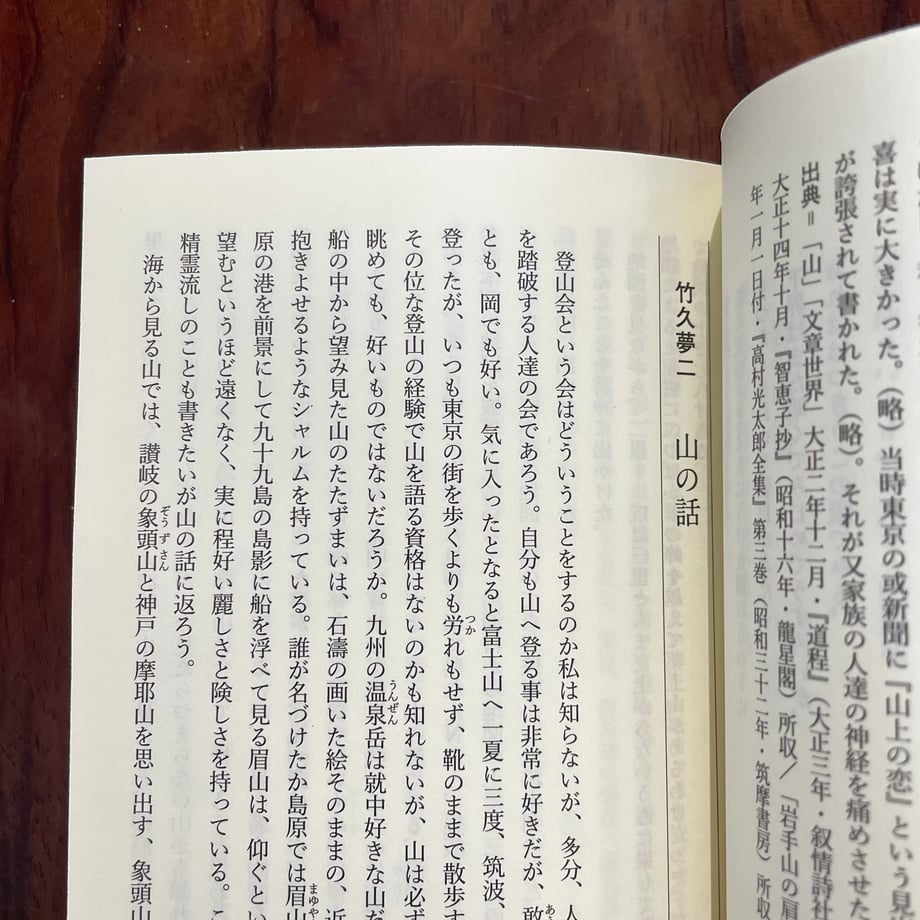 喜は実に大きかった。（略）当時東京の或新聞に『山上の恋』という見
が誇張されて書かれた。（略）。それが又家族の人達の神経を痛めさせた
出典＝「山」「文章世界」大正二年十二月・『道程』（大正三年・叙情詩社
大正十四年十月・『智恵子抄』（昭和十六年・龍星閣）所収／「岩手山の肩
年一月一日付・『高村光太郎全集』第三巻（昭和三十二年・筑摩書房）所収
竹久夢二　山の話
登山会という会はどういうことをするのか私は知らないが、多分、人
を踏破する人達の会であろう。自分も山へ登る事は非常に好きだが、敢
とも、岡でも好い。気に入ったとなると富士山へ一夏に三度、筑波、
登ったが、いつも東京の街を歩くよりも労れもせず、靴のまま散歩す
その位な登山の経験で山を語る資格はないのかも知れないが、山は必ず
眺めても、好いものではないだろうか。九州の温泉岳は就中好きな山だ
船の中から望み見た山のたたずまいは、石濤の画いた絵そのままの、近
抱きよせるようなシャルムを持っている。誰が名づけたか島原では眉山
原の港を前景にして九十九島の島影に船を浮べて見る眉山は、仰ぐとい
望むというほど遠くなく、実に程好い麗しさと険しさを持っている。こ
精霊流しのことも書きたいが山の話に返ろう。
海から見る山では、讃岐の象頭山と神戸の摩耶山を思い出す、象頭山